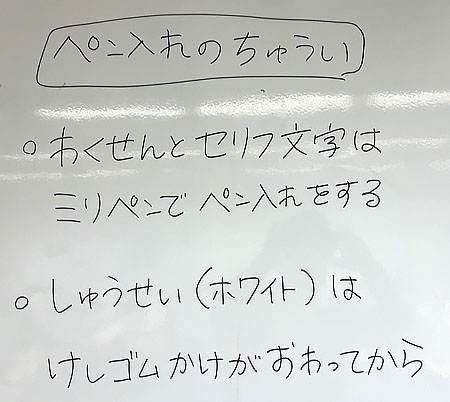 ペン入れのちゅうい
○ わくせんとセリフ文字は
ミリペンでペン入れをする
○ しゅうせい(ホワイト)は
けしゴムかけがおわってから